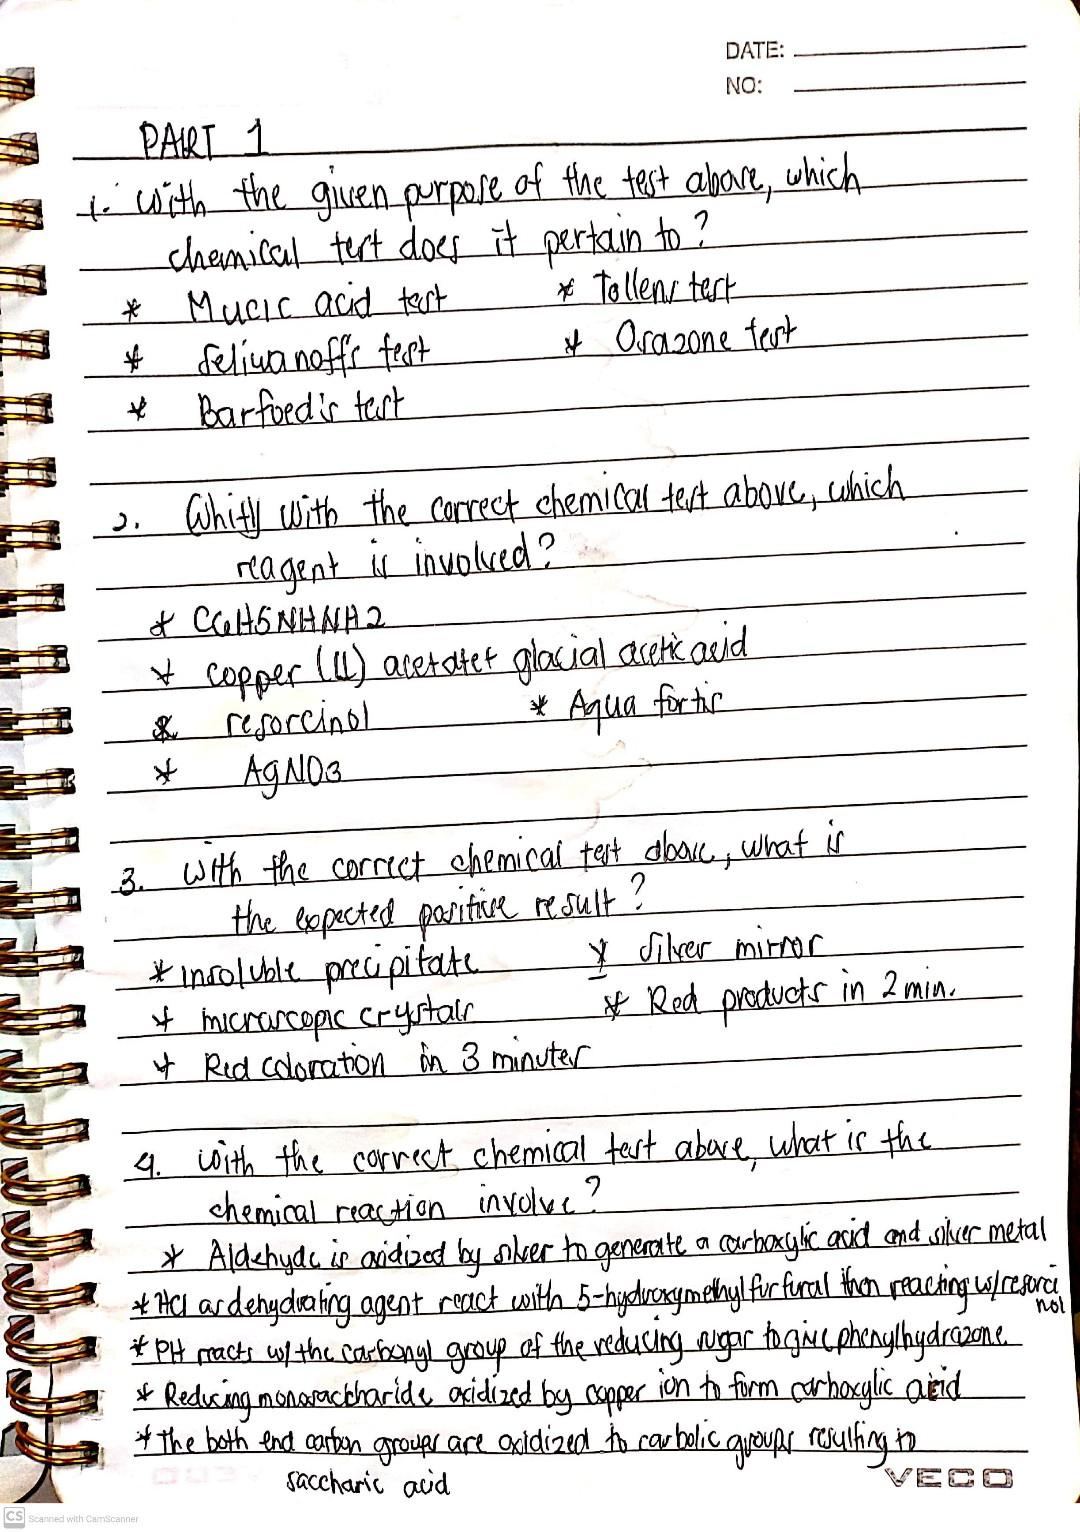 DATE:
NO:
PART 1
1. With the given purpose of the test above, which
chemical test does it pertain to?
* Mucic acid test * Tollens test
* Seliwanoff's test * Osazone test
* Barfoed's test
2. with the correct chemical test above, which
reagent is involved?
* C6H5NHNH2
* copper (II) acetate + glacial acetic acid
* resorcinol * Aqua fortis
* AgNO3
3. With the correct chemical test above, what is
the expected positive result?
* insoluble precipitate * Silver mirror
* microscopic crystals * Red products in 2 min.
* Red coloration in 3 minutes
4. With the correct chemical test above, what is the
chemical reaction involve?
* Aldehyde is oxidized by silver to generate a carboxylic acid and silver metal
* HCl as dehydrating agent react with 5-hydroxymethylfurfural then reacting w/ resorci
nol
* PH reacts w/ the carbonyl group of the reducing sugar to give phenylhydrazone
* Reducing monosaccharide oxidized by copper ion to form carboxylic acid
* The both end carbon groups are oxidized to carbolic groups resulting to
saccharic acid
VECO
CS Scanned with CamScanner